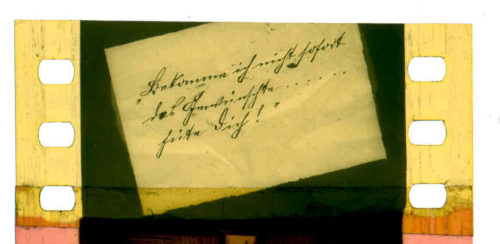 „Bekomme ich nicht sofort
das Gewünschte . . . . . . .
hüte Dich!"